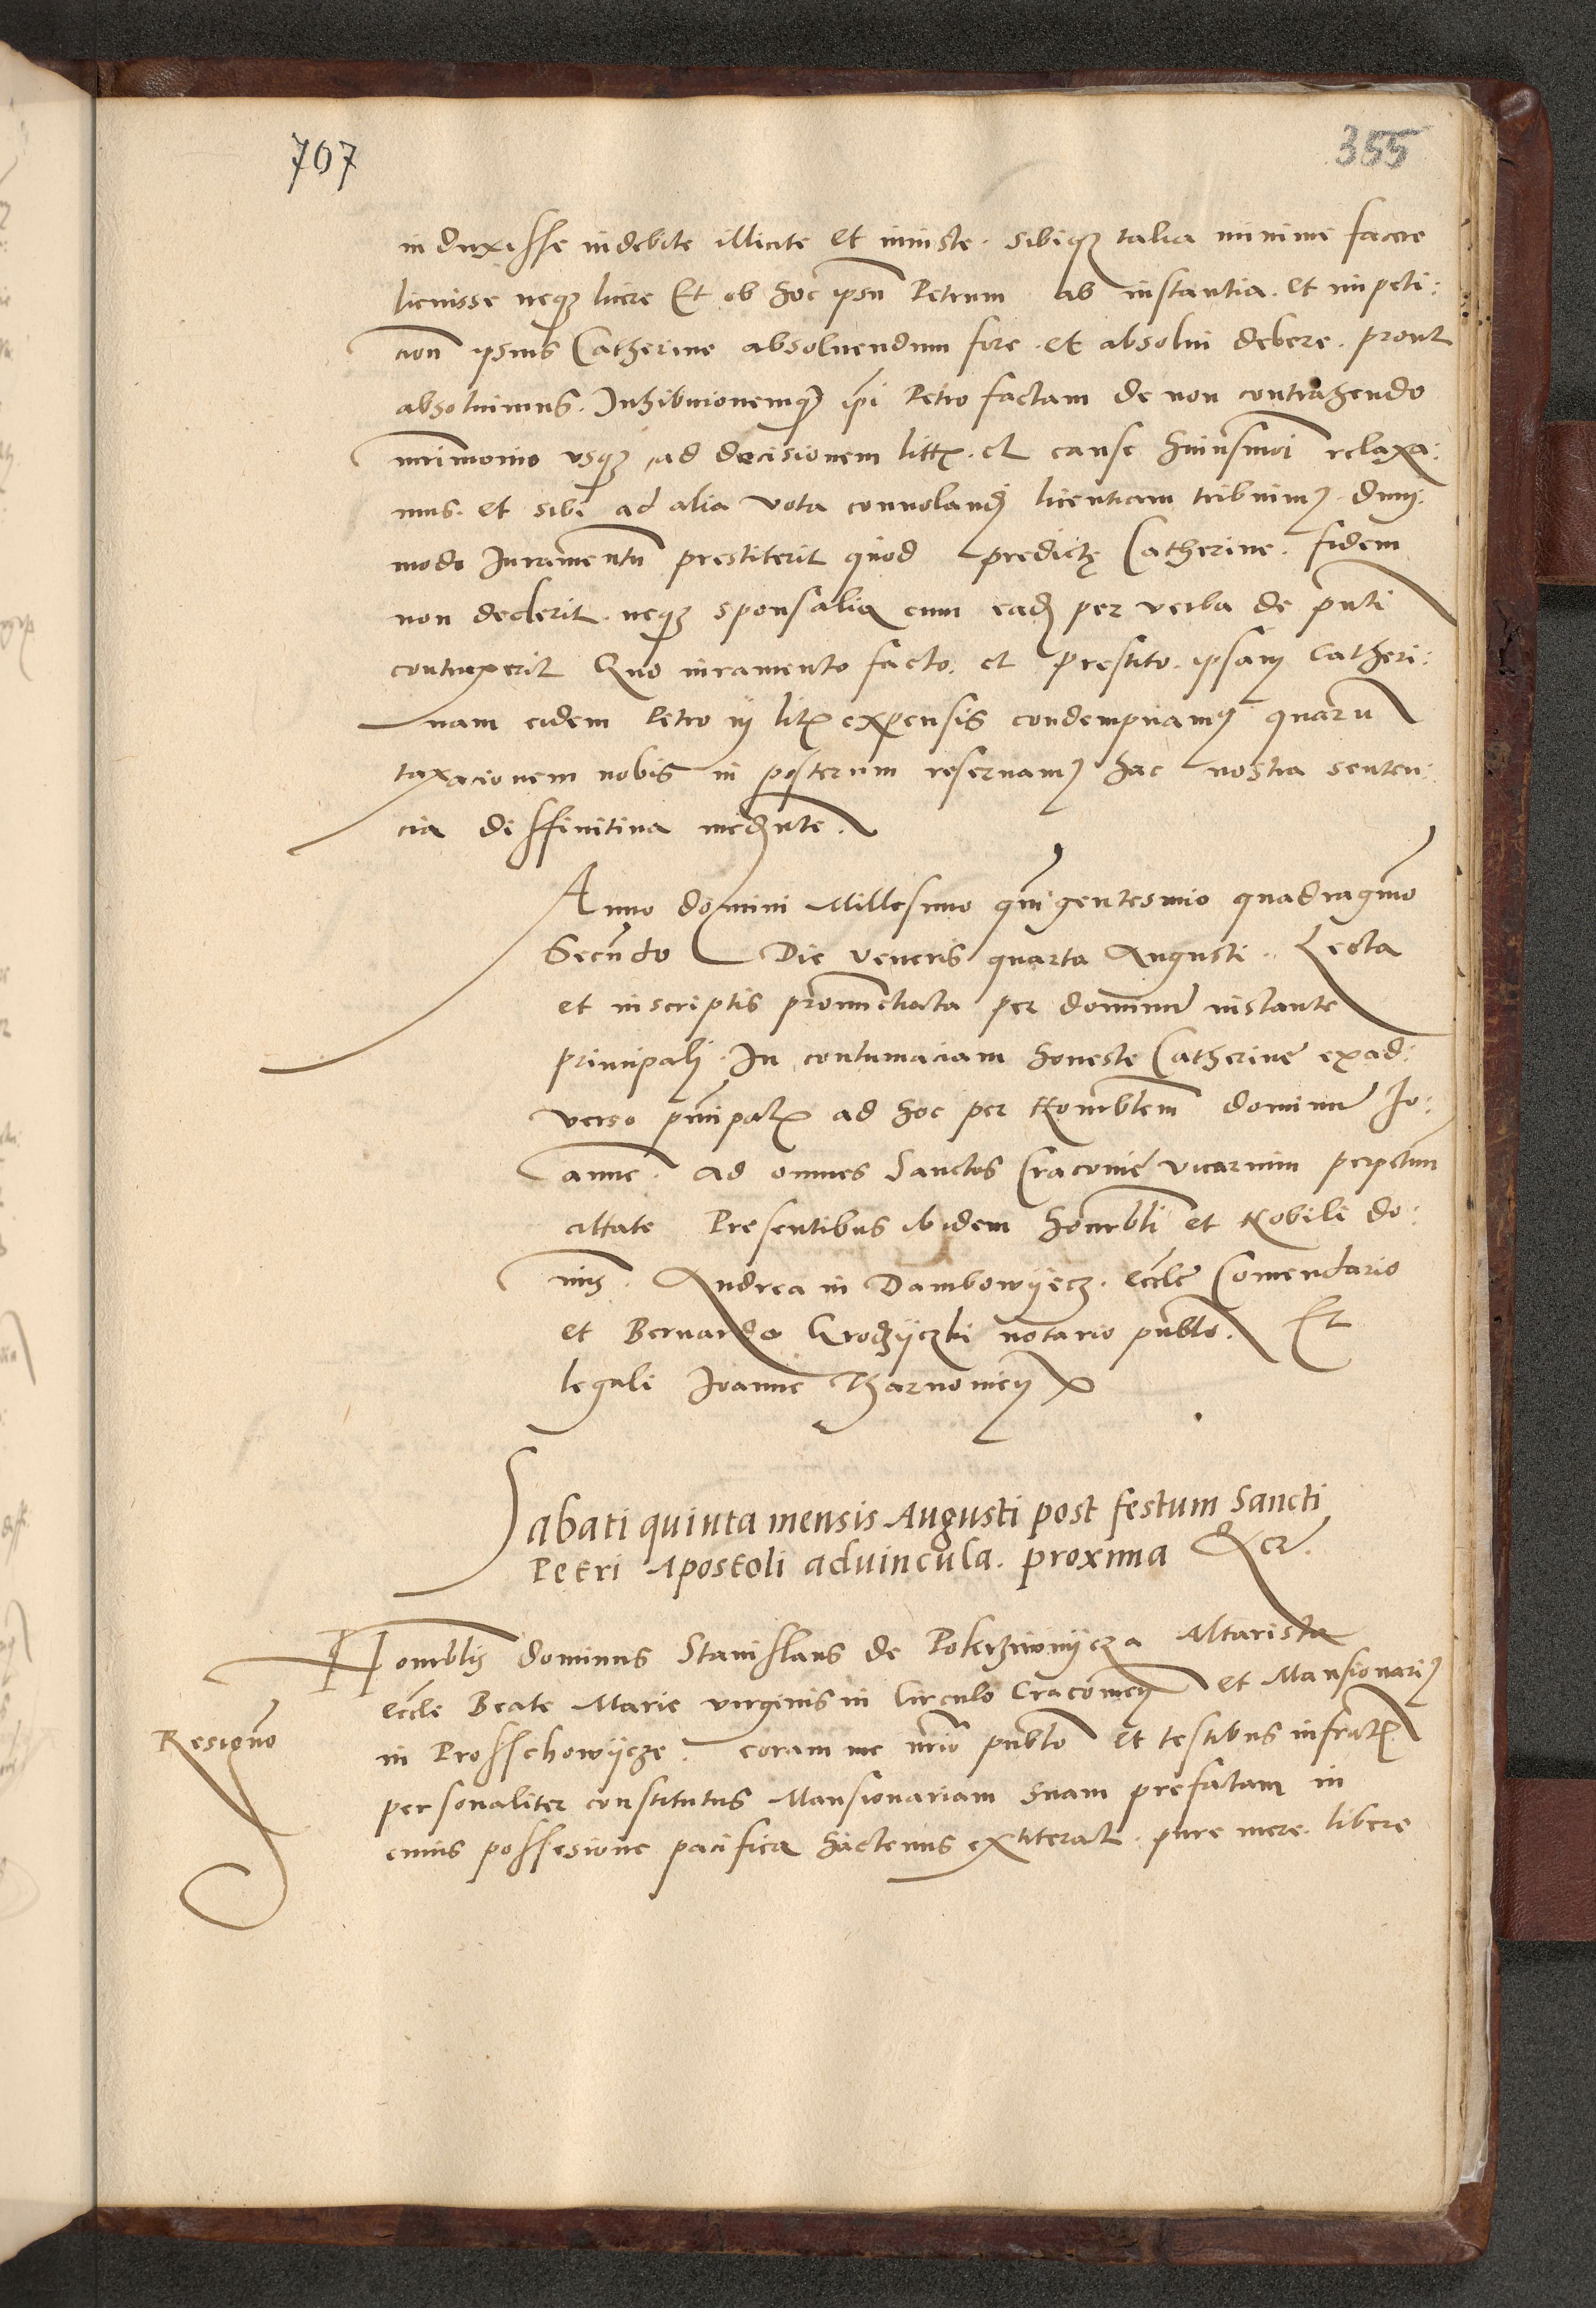 707
355
in duxisse indebite illicite et iniuste. sibiq3 talia minime facere
licuisse neq3 licere Et ob hoc ipsu Petrum ab instantia. et impeti:
cion ipsius Catherine absoluendum fore. et absolui debere. prout
absoluimus. Inhibicionemq3 ipi Petro factam de non contrahendo
mrimonio vsq3 ad decisionem litt. et cause huiusmoi relaxa:
mus. et sibi ad alia vota conuolandj licentiam tribuim9. dum
modo Iuramentu prestiterit quod predictę Catherine. fidem
non dederit. neq3 sponsalia cum eadj per verba de pnti
contraxerit Quo iuramento facto. et prestito. ipsam Catheri:
nam eidem Petro in lit expensis condempnam9 quaru
taxacionem nobis in posterum reseruam9 hac nostra senten:
cia diffinitiua mediante.
Anno domini Millesimo quigentesimo quadragimo
Secundo Die veneris quarta Augusti. Lecta
et inscriptis pronunctiata per dominu instante
principalj. In contumaciam honeste Catherine exad:
verso principal ad hoc per Honorblem dominu Jo:
anne. ad omnes Sanctos Cracouie vicarium perpetuu
citate Presentibus ibidem honorbli et Nobili do:
nis. Andrea in Dambowyecz. eccle Comendario
et Bernardo Grodzyczki notario publo. Et
legali Joanne Tharnouien
Sabati quinta mensis Augusti post festum Sancti
Petri Apostoli aduincula. proxima &c.
Resigno
Honorblis dominus Stanislaus de Pokrziwnycza Altarista
eccle Beate Marie virginis in Circulo Cracouien et Mansionari9
in Prosschowycze. coram me nrio publo et testibus infrat
personaliter constitutus Mansionariam suam prefatam in
cuius possesione pacifica hactenus extiterat. pure mere. libere